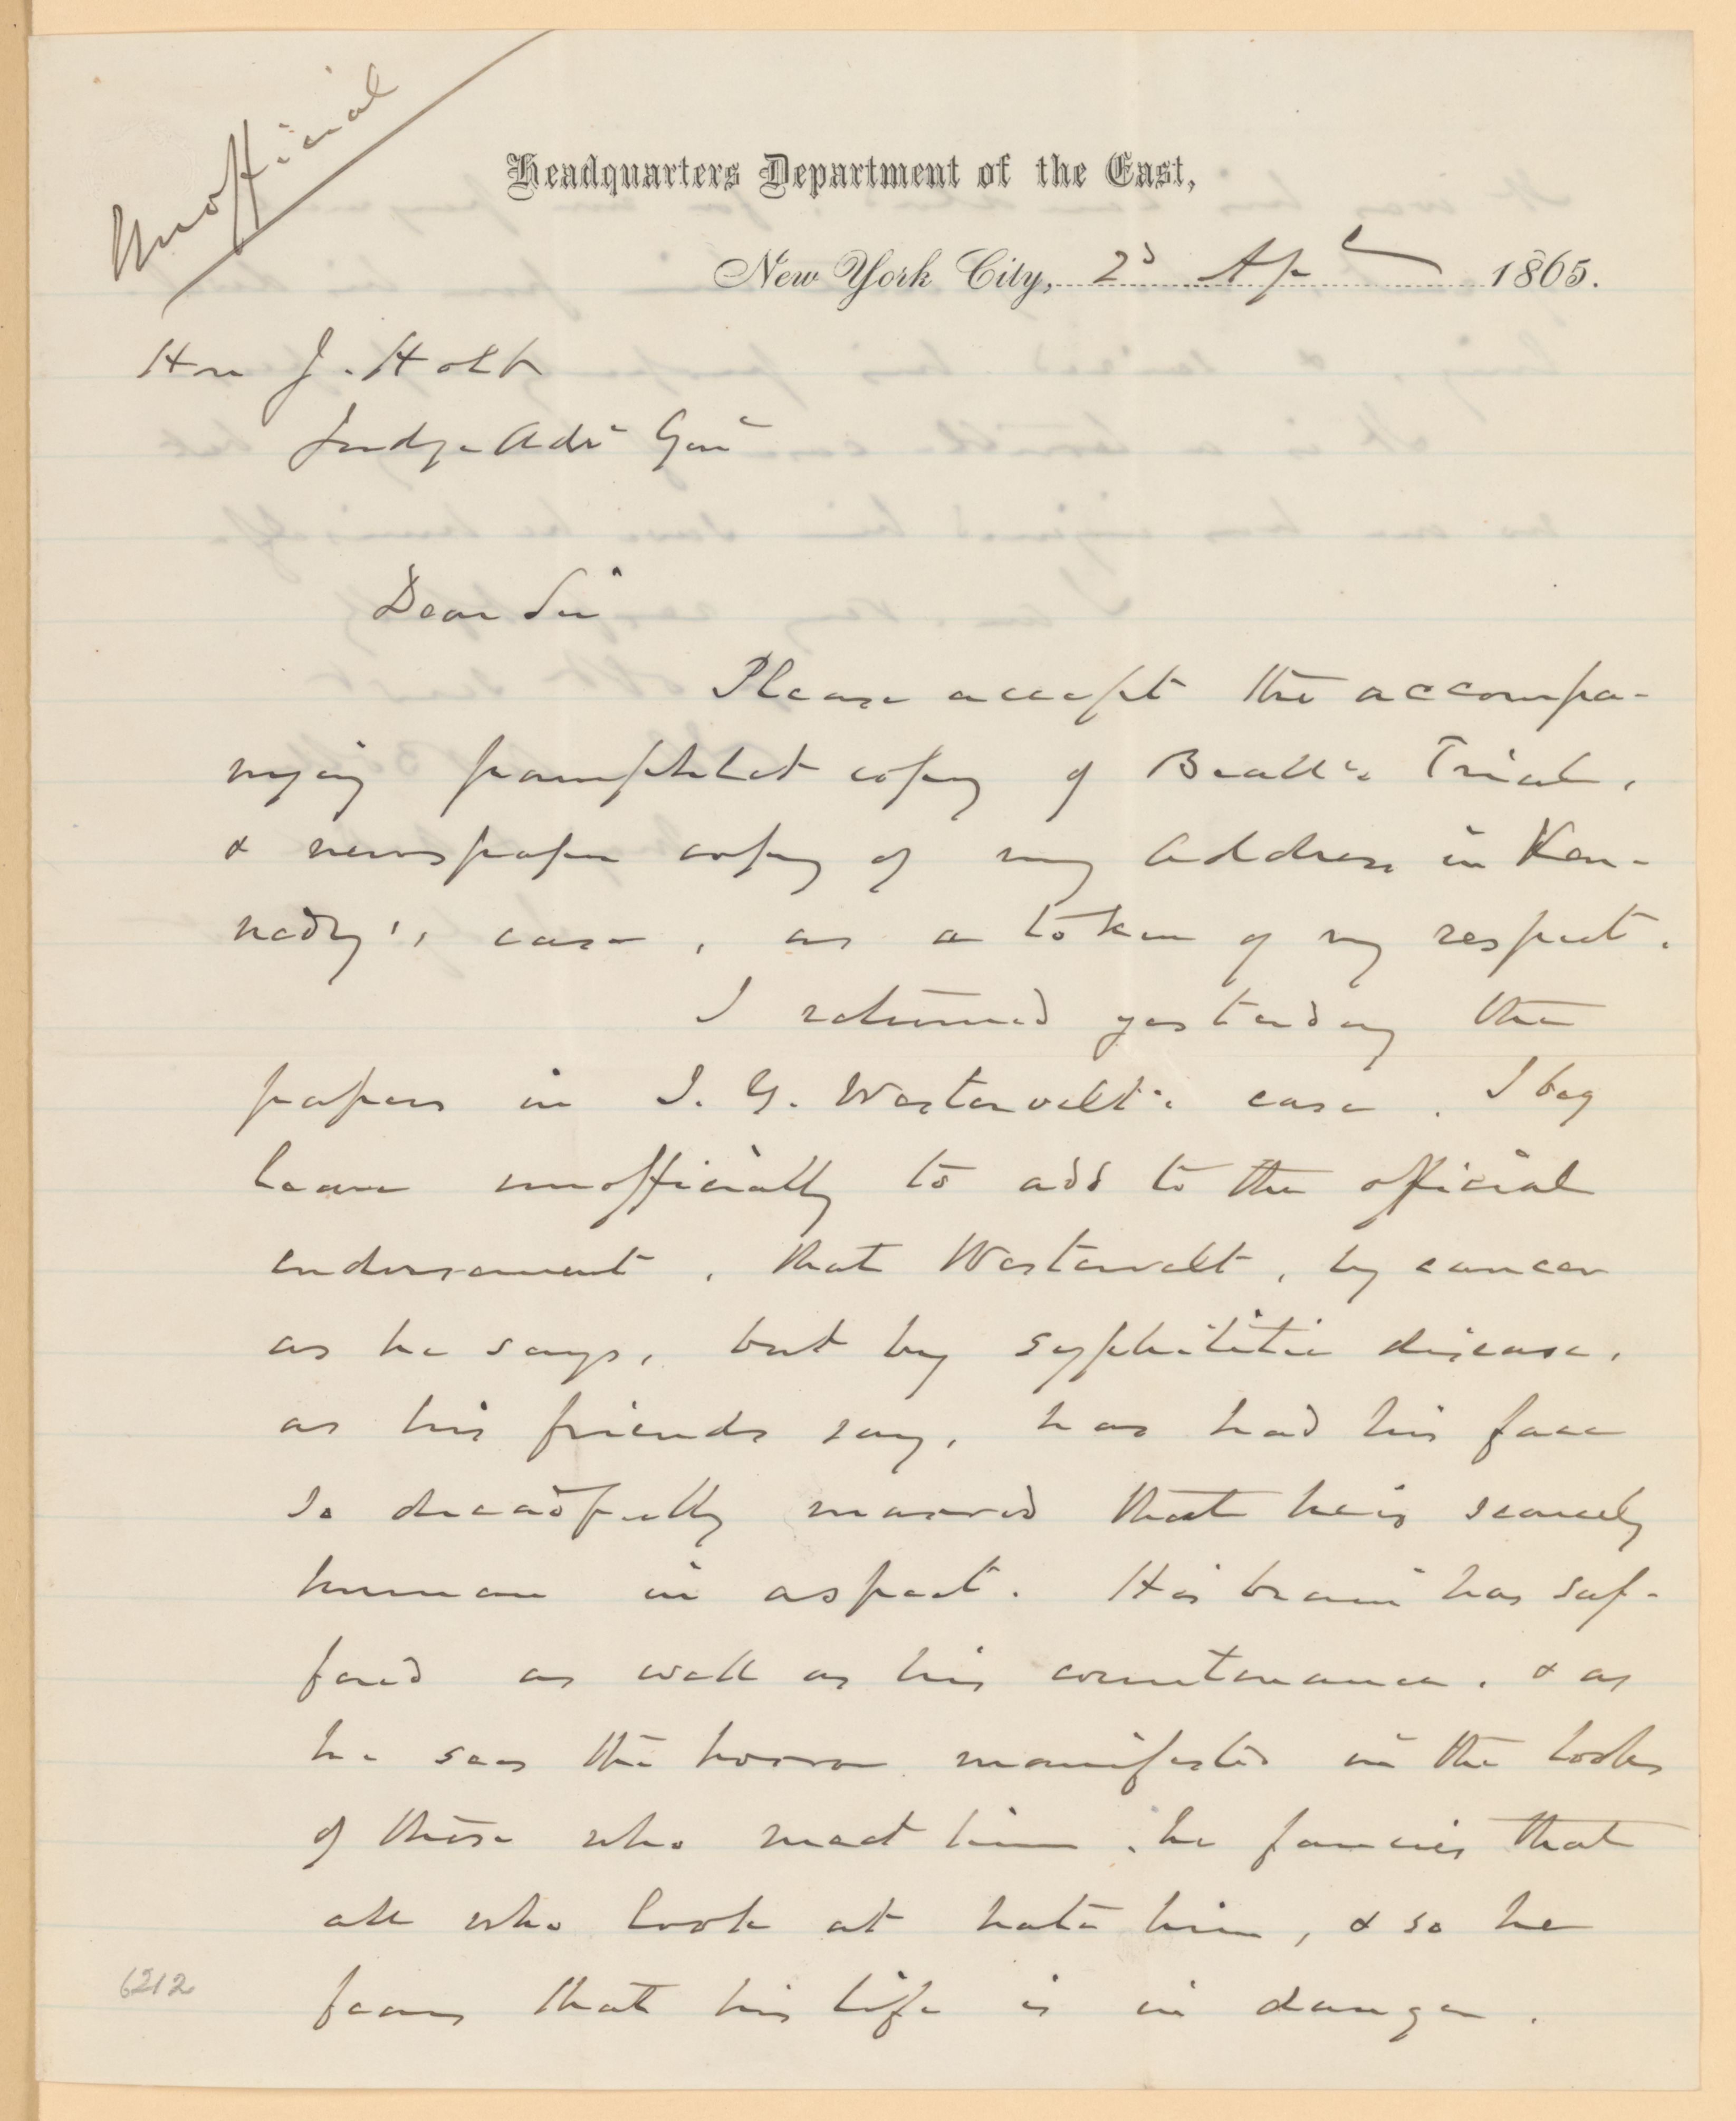 Unofficial
Headquarters Department of the East,
New York City, 2d Apl 1865.
Hon J. Holt
Judge Adv Genl
Dear Sir
Please accept the accompa-
nying pamphlet copy of Beall's Trial,
& newspaper copy of my address in Ken-
nedy's case, as a token of my respect.
I returned yesterday the
papers in J. G. Westervelt's case. I beg
leave unofficially to add to the official
endorsement, that Westervelt, by cancer
as he says, but by syphilitic disease,
as his friends say, has had his face
so dreadfully marred that he is scarcely
human in aspect. His brain has suf-
fered as well as his countenance, & as
he sees the horror manifested in the looks
of those who meet him, he fancies that
all who look at hate him, & so he
fears that his life is in danger.
6212